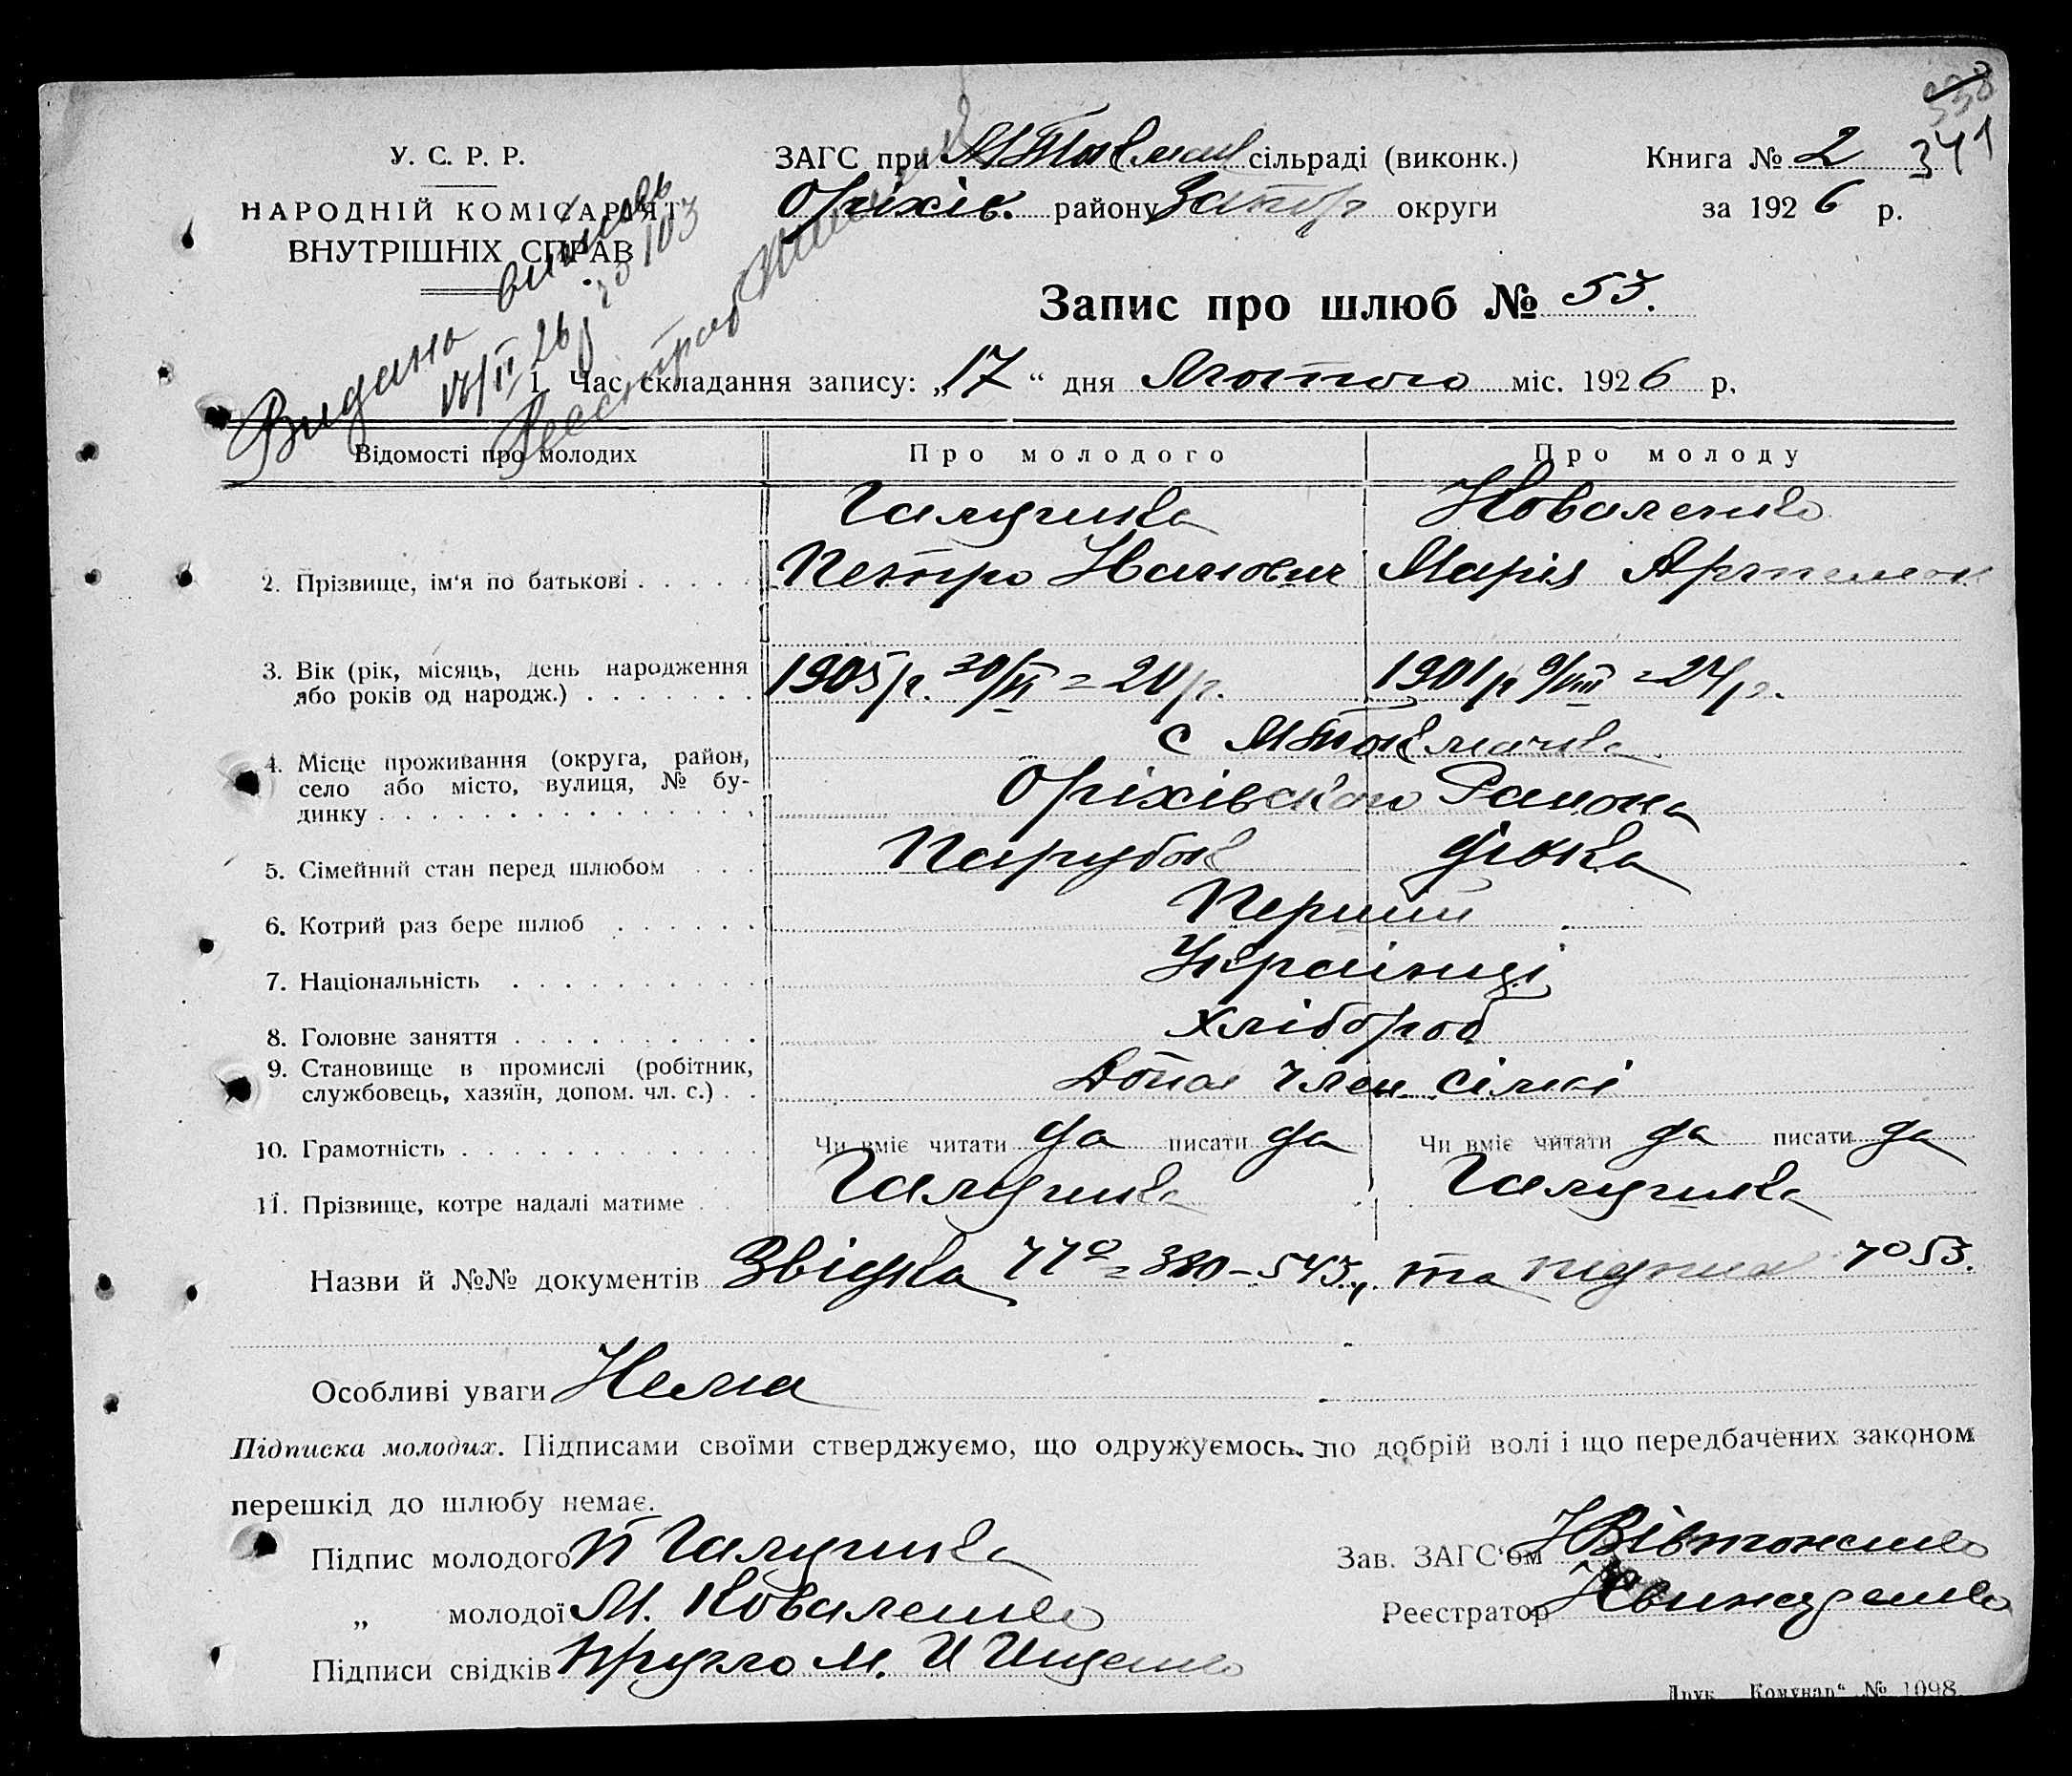 338
341
У. С. Р. Р.
НАРОДНІЙ КОМІСАРІЯТ
ВНУТРІШНІХ СПРАВ
ЗАГС при М Токмац сільраді (виконк.)
Оріхів. району Запор округи
Книга № 2
за 1926 р.
Видана виписъ
17/II 26 р. 103
Реєстратор
Запис про шлюб № 53.
1. Час складання запису: „17“ дня Лютого міс. 1926 р.
Відомості про молодих Про молодого Про молоду
Галушка Коваленко
2. Прізвище, ім‘я по батькові Петро Іванович Марія Артемов
3. Вік (рік, місяць, день народження 1905 р. 20/VI = 20 р. 1901 р 9/VIII = 24 р.
або років од народж.)
с МТокмачка
4. Місце проживання (округа, район,
село або місто, вулиця, № бу- Оріхівського Района
динку
5. Сімейний стан перед шлюбом Парубок дівка
6. Котрий раз бере шлюб Перший
7. Національність Українці
8. Головне заняття Хлібороб
9. Становище в промислі (робітник, Допом член сімьі
службовець, хазяїн, допом. чл. с.)
10. Грамотність Чи вміє читати да писати да Чи вміє читати да писати да
11. Прізвище, котре надалі матиме Галушка Галушка
Назви й №№ документів Звідка = 380-543, та підпис 53.
Особливі уваги Нема
Підписка молодих. Підписами своїми стверджуємо, що одружуємось по добрій волі і що передбачених законом
перешкід до шлюбу немає.
Підпис молодого П Галушка Зав. ЗАГС‘ом
„ молодої М. Коваленко Реєстратор
Підписи свідків Кругло М. И Ищенко
Друк. „Комунар“ № 1098